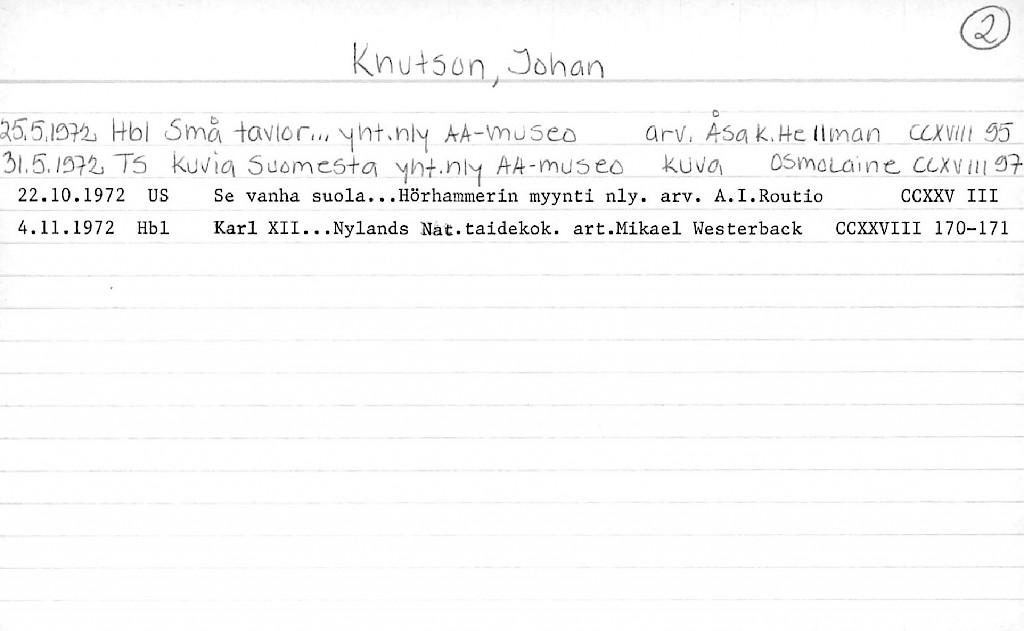 2
Knutson, Johan
25.5.1972 Hbl Små tavlor... yht.nly AA-museo arv. Åsa K. Hellman CCXVIII 95
31.5.1972 TS kuvia Suomesta yht.nly AA-museo kuva Osmo Laine CCXVIII 97
22.10.1972 US Se vanha suola...Hörhammerin myynti nly. arv. A.I.Routio CCXXV III
4.11.1972 Hbl Karl XII...Nylands Nat.taidekok. art.Mikael Westerback CCXXVIII 170-171